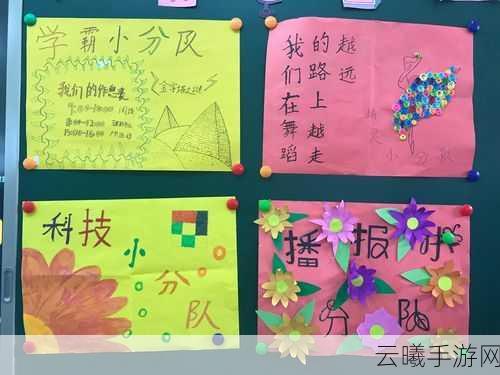 学霸小分队
我们的作息表
我们在舞蹈
的路上越走
越远
小分队
科技小分队
播报小
分队
云曦手游网